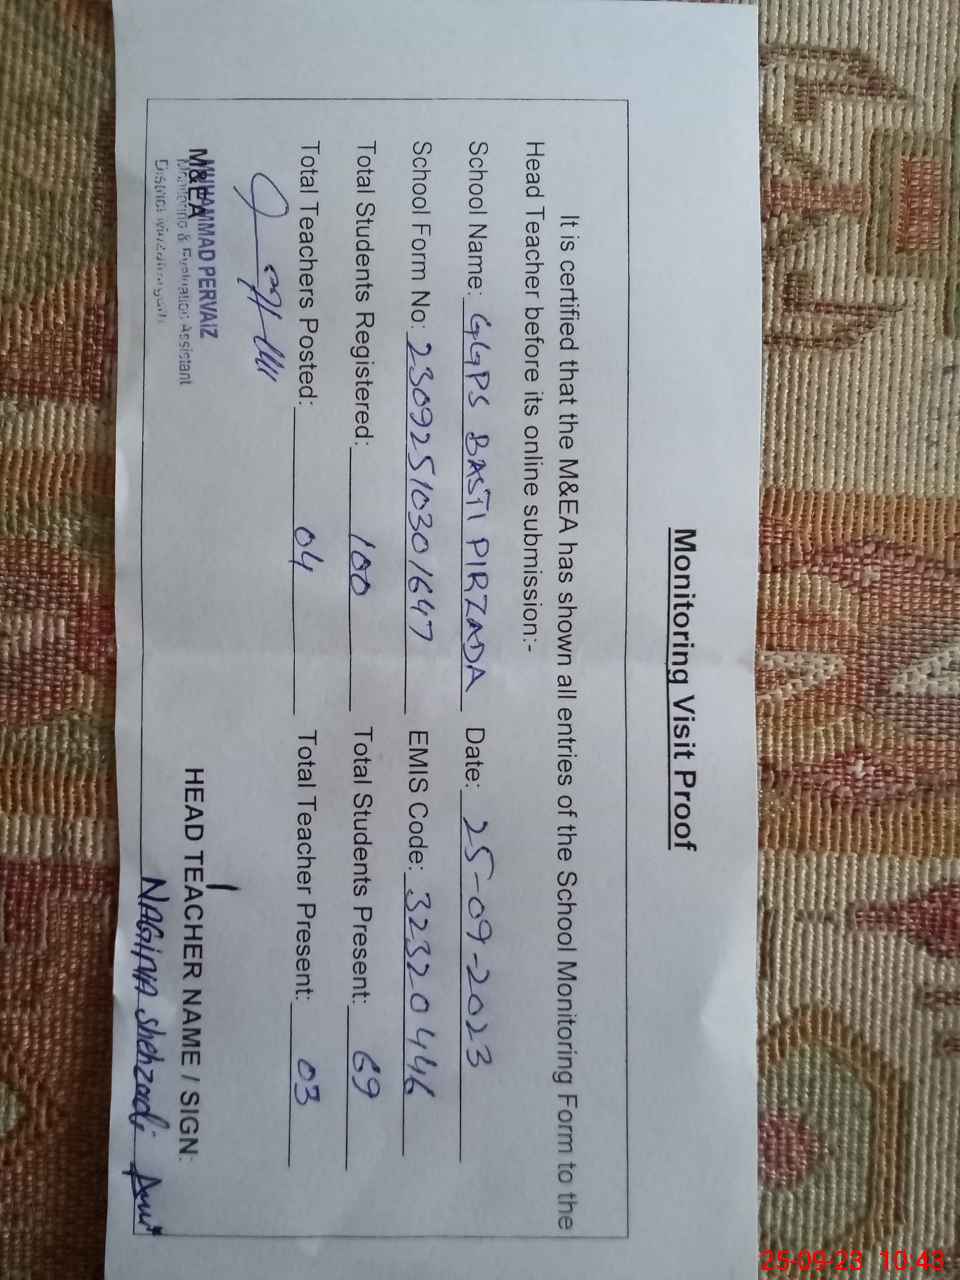 Monitoring Visit Proof
It is certified that the M&EA has shown all entries of the School Monitoring Form to the
Head Teacher before its online submission:-
School Name: GGPS BASTI PIRZADA Date: 25-09-2023
School Form No: 2309251030 1647 EMIS Code: 32320446
Total Students Registered: 100 Total Students Present: 69
Total Teachers Posted: 04 Total Teacher Present: 03
M&EA HEAD TEACHER NAME / SIGN:
MUHAMMAD PERVAIZ
Monitoring & Evaluation Assistant
District Muzaffargarh
NAGINA Shehzadi
25-09-23 10:43